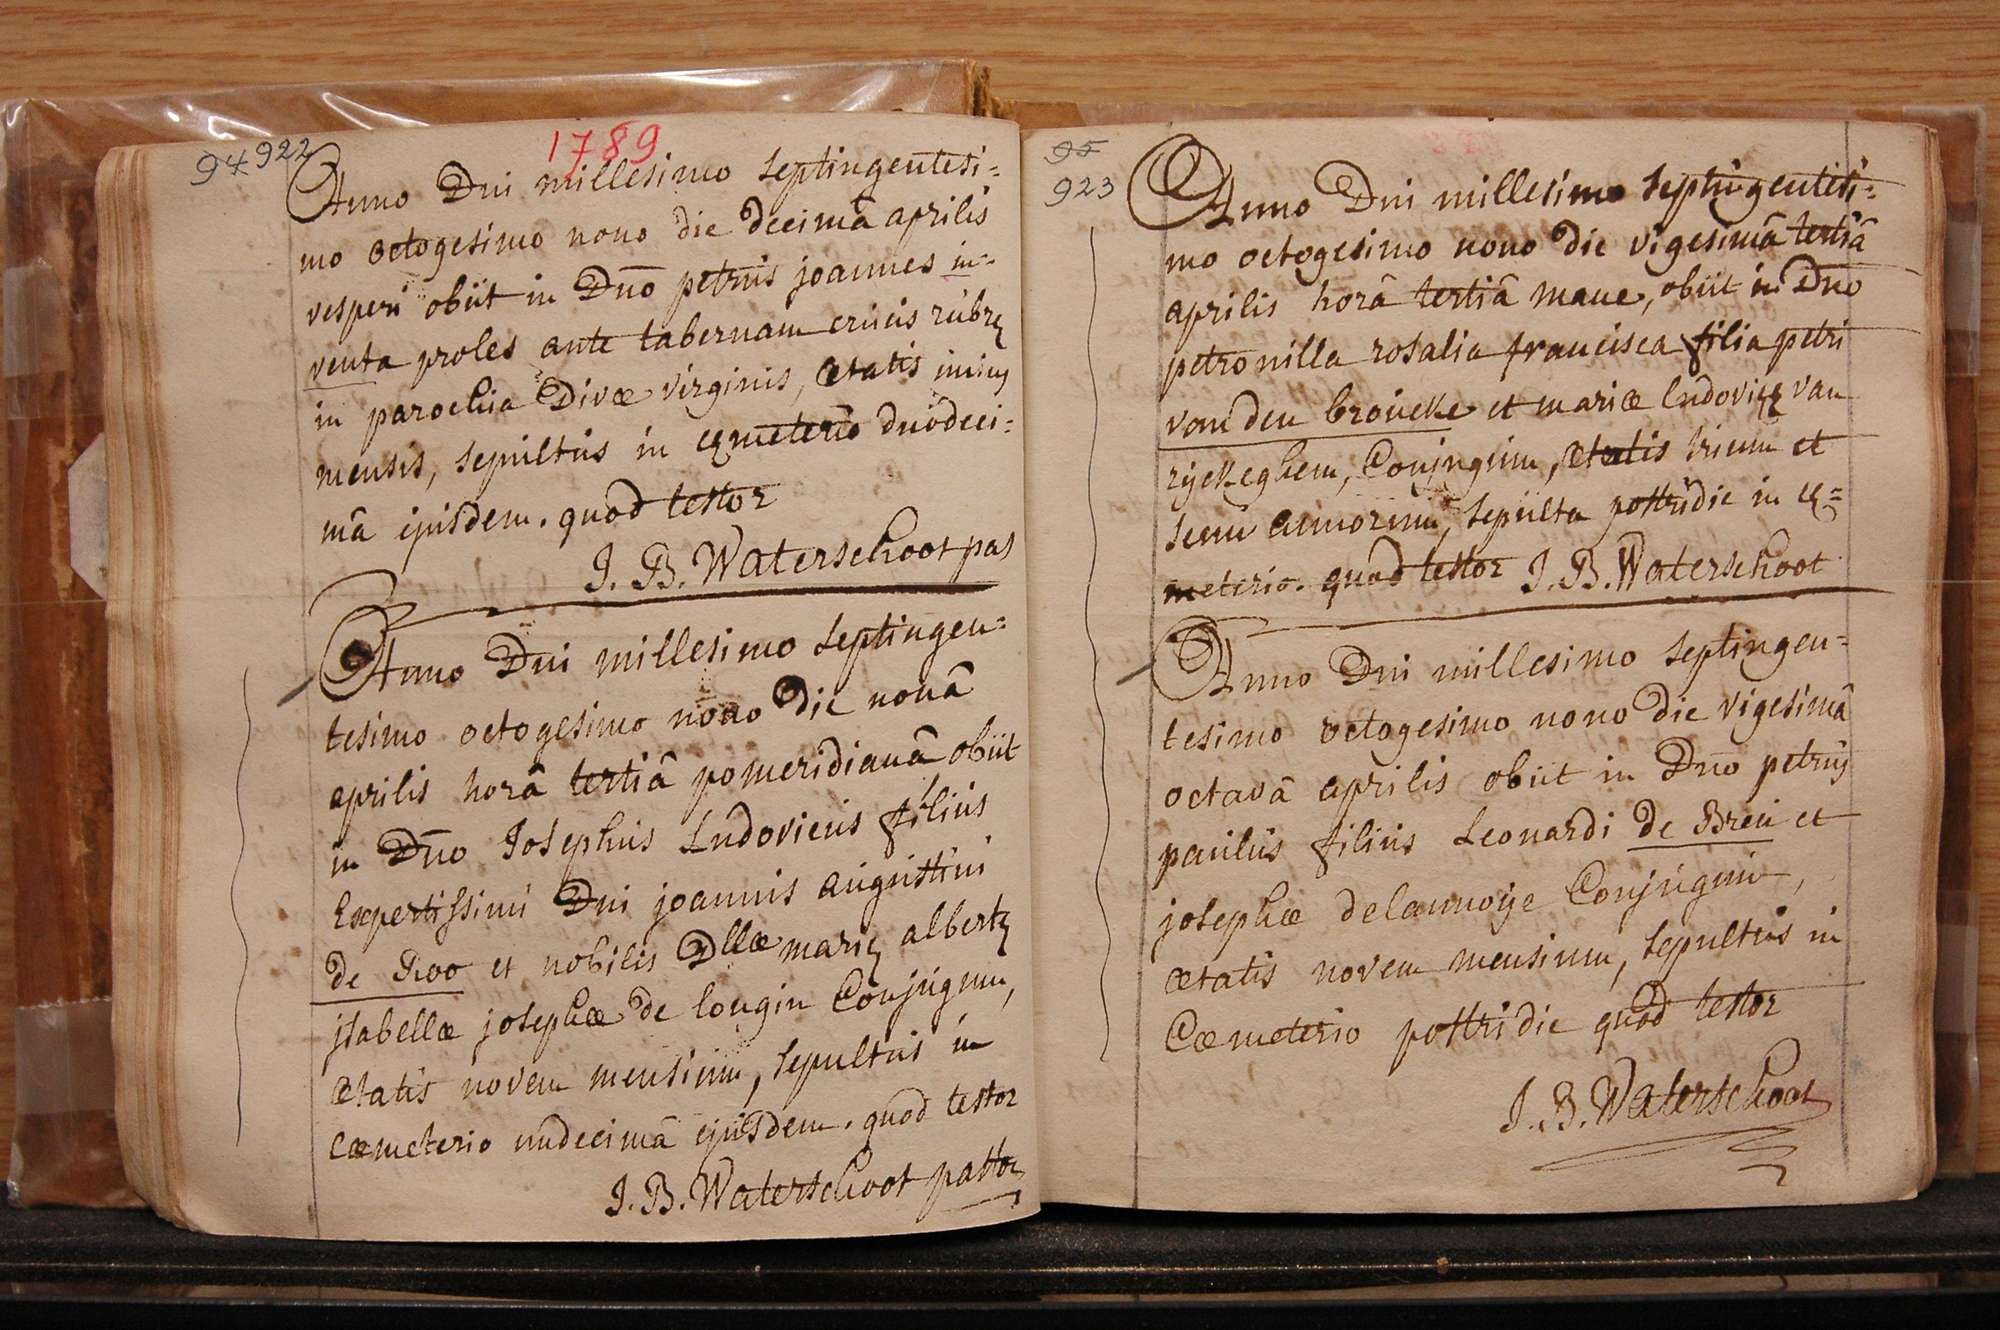 94 922
1789
Anno Dni millesimo septingentesi=
mo octogesimo nono die decimâ aprilis
vesperi obiit in Dno petrus joannes in-
venta proles ante tabernam crucis rubrę
in parochia Divæ virginis, ætatis unius
mensis, sepultus in cęmeterio duodeci=
mâ ejusdem. quod testor
J. B. Waterschoot pas
Anno Dni millesimo septingen=
tesimo octogesimo nono die nonâ
aprilis horâ tertiâ pomeridianâ obiit
in Dno Josephus Ludovicus filius
Expertissimi Dni joannis augustini
de Roo et nobilis Dllæ marię albertę
jsabellæ josephæ de longin Conjugum,
ætatis novem mensium, sepultus in
cæmeterio undecimâ ejusdem. quod testor
J. B. Waterschoot pastor
95
923
Anno Dni millesimo septingentesi=
mo octogesimo nono die vigesimâ tertiâ
aprilis horâ tertiâ mane, obiit in Dno
petronilla rosalia francisca filia petri
van den broucke et mariæ ludovicę van
ryckeghem, Conjugum, ætatis trium et
semi annorum, sepulta postridie in cę=
meterio. quod testor J. B. Waterschoot
Anno Dni millesimo septingen=
tesimo octogesimo nono die vigesimâ
octavâ aprilis obiit in Dno petrus
paulus filius Leonardi de Breu et
josephæ delannoije Conjugum,
ætatis novem mensium, sepultus in
Cæmeterio postridie quod testor
J. B. Waterschoot